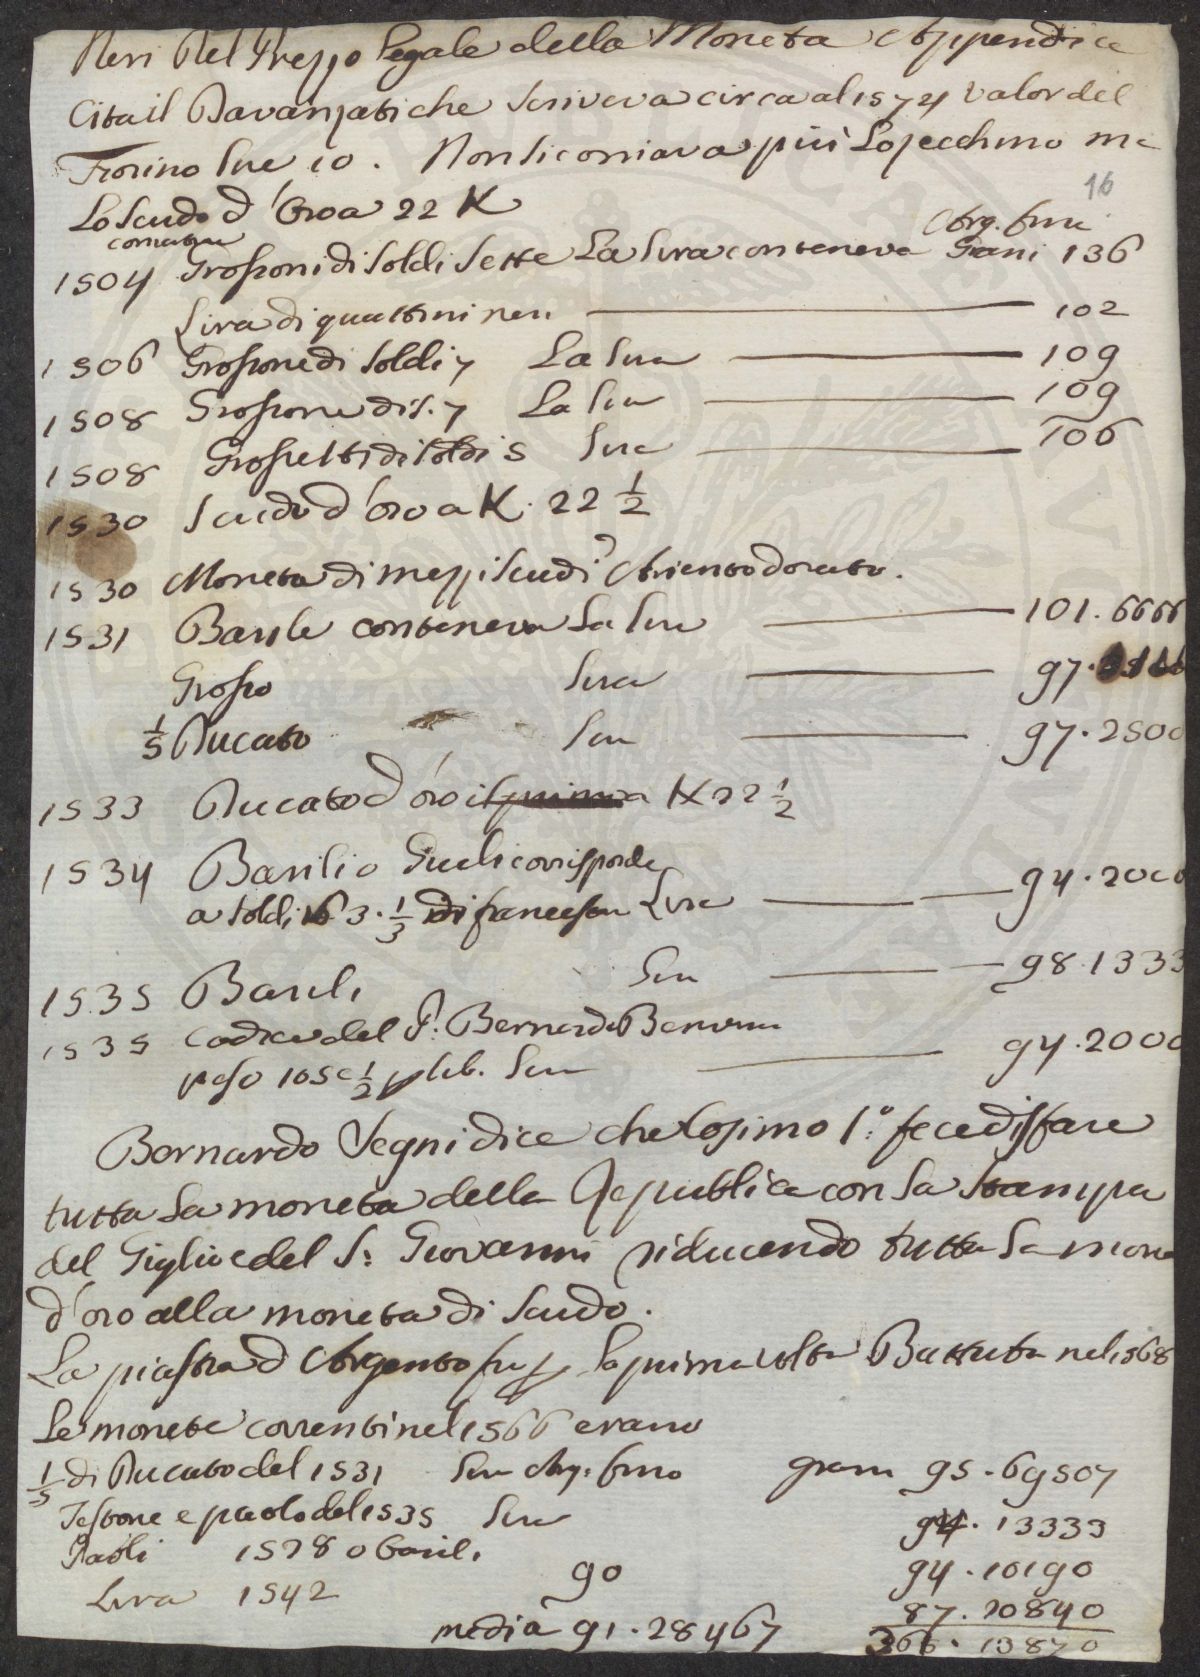 Neri Del Prezzo legale della Moneta Appendice
Cita il Davanzati che scriveva circa al 1574 valor del
Fiorino lire 10. Non si coniava più lo zecchino ma
16
Lo Scudo d'Oro a 22 K
Arg. fino
coniati
1504 Grossoni di soldi sette La lira conteneva Grani 136
Lira di quattrini neri 102
1506 Grossone di soldi 7 La lira 109
1508 Grossone di s. 7 La lira 109
1508 Grossetti di soldi 5 lira 106
1530 Scudo d'oro a K. 22 1/2
1530 Moneta di mezzi scudi Ariento dorato.
1531 Barile conteneva La lira 101.6666
Grosso lira 97.
1/5 Ducato lira 97.2500
1533 Ducato d'oro K 22 1/2
1534 Barili o Giuli corrisponde
a soldi 3.1/3 di lira 94.2000
1535 Barili lira 98.1333
1535 Codice del P. Bernardo
peso 105 1/2 p lib. lira 94.2000
Bernardo Segni dice che Cosimo I.o fece disfare
tutta la moneta della Republica con la stampa
del Giglio e del S. Giovanni riducendo tutta la mone
d'oro alla moneta di scudo.
La piastra d'Argento fu p la prima volta Battuta nel 1568
Le monete correnti nel 1566 erano
1/5 di Ducato del 1531 lira Arg. fino grani 95.69507
Testone e paolo del 1535 lira 94.13333
Paoli 1538 o barili 94.10190
Lira 1542 90 87.20840
media 91.28467 366.13870